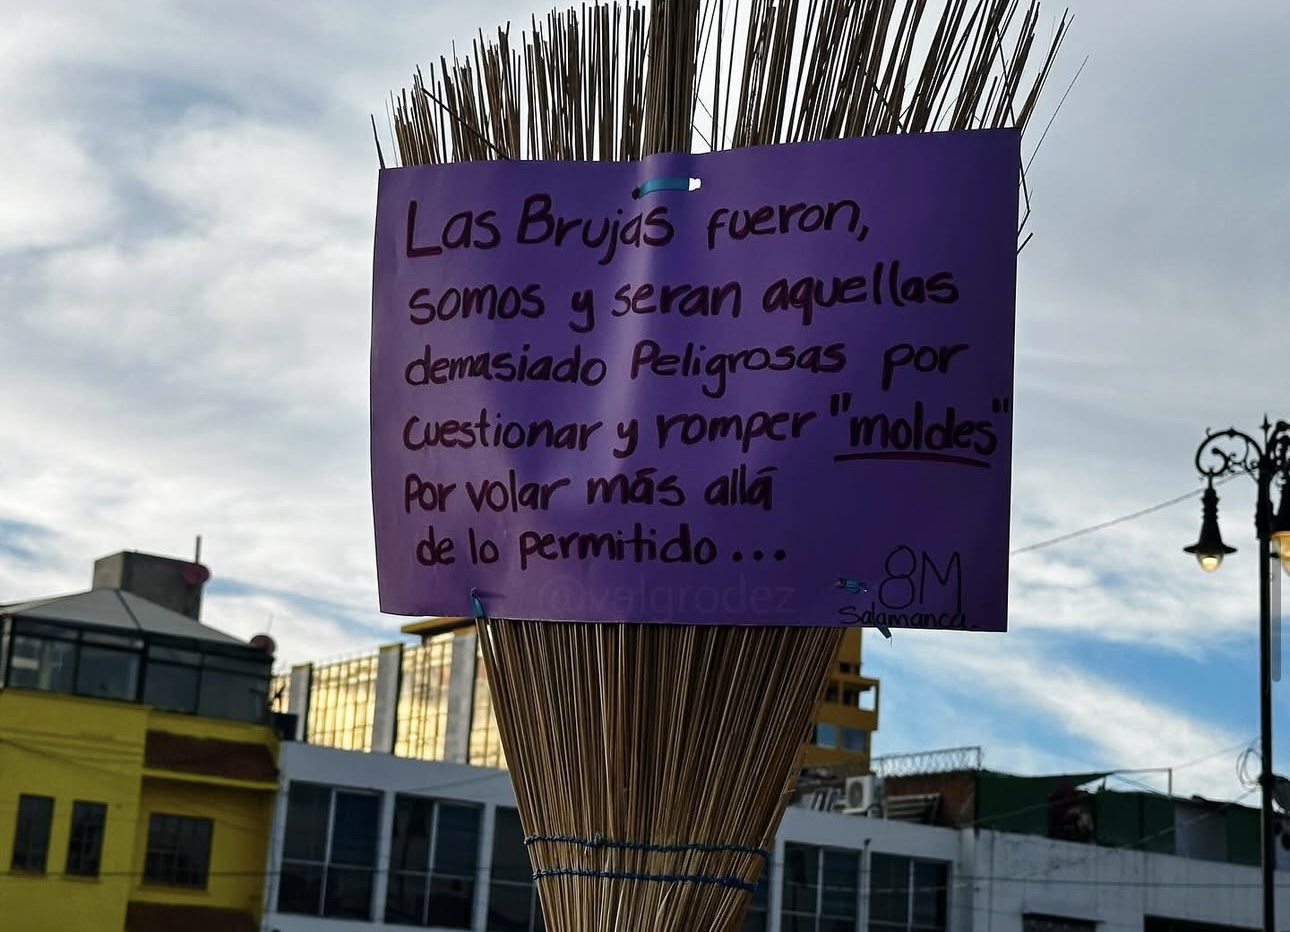 Las Brujas fueron,
somos y seran aquellas
demasiado Peligrosas por
cuestionar y romper "moldes"
Por volar más allá
de lo permitido...
8M
Salamanca.
@valgrodez